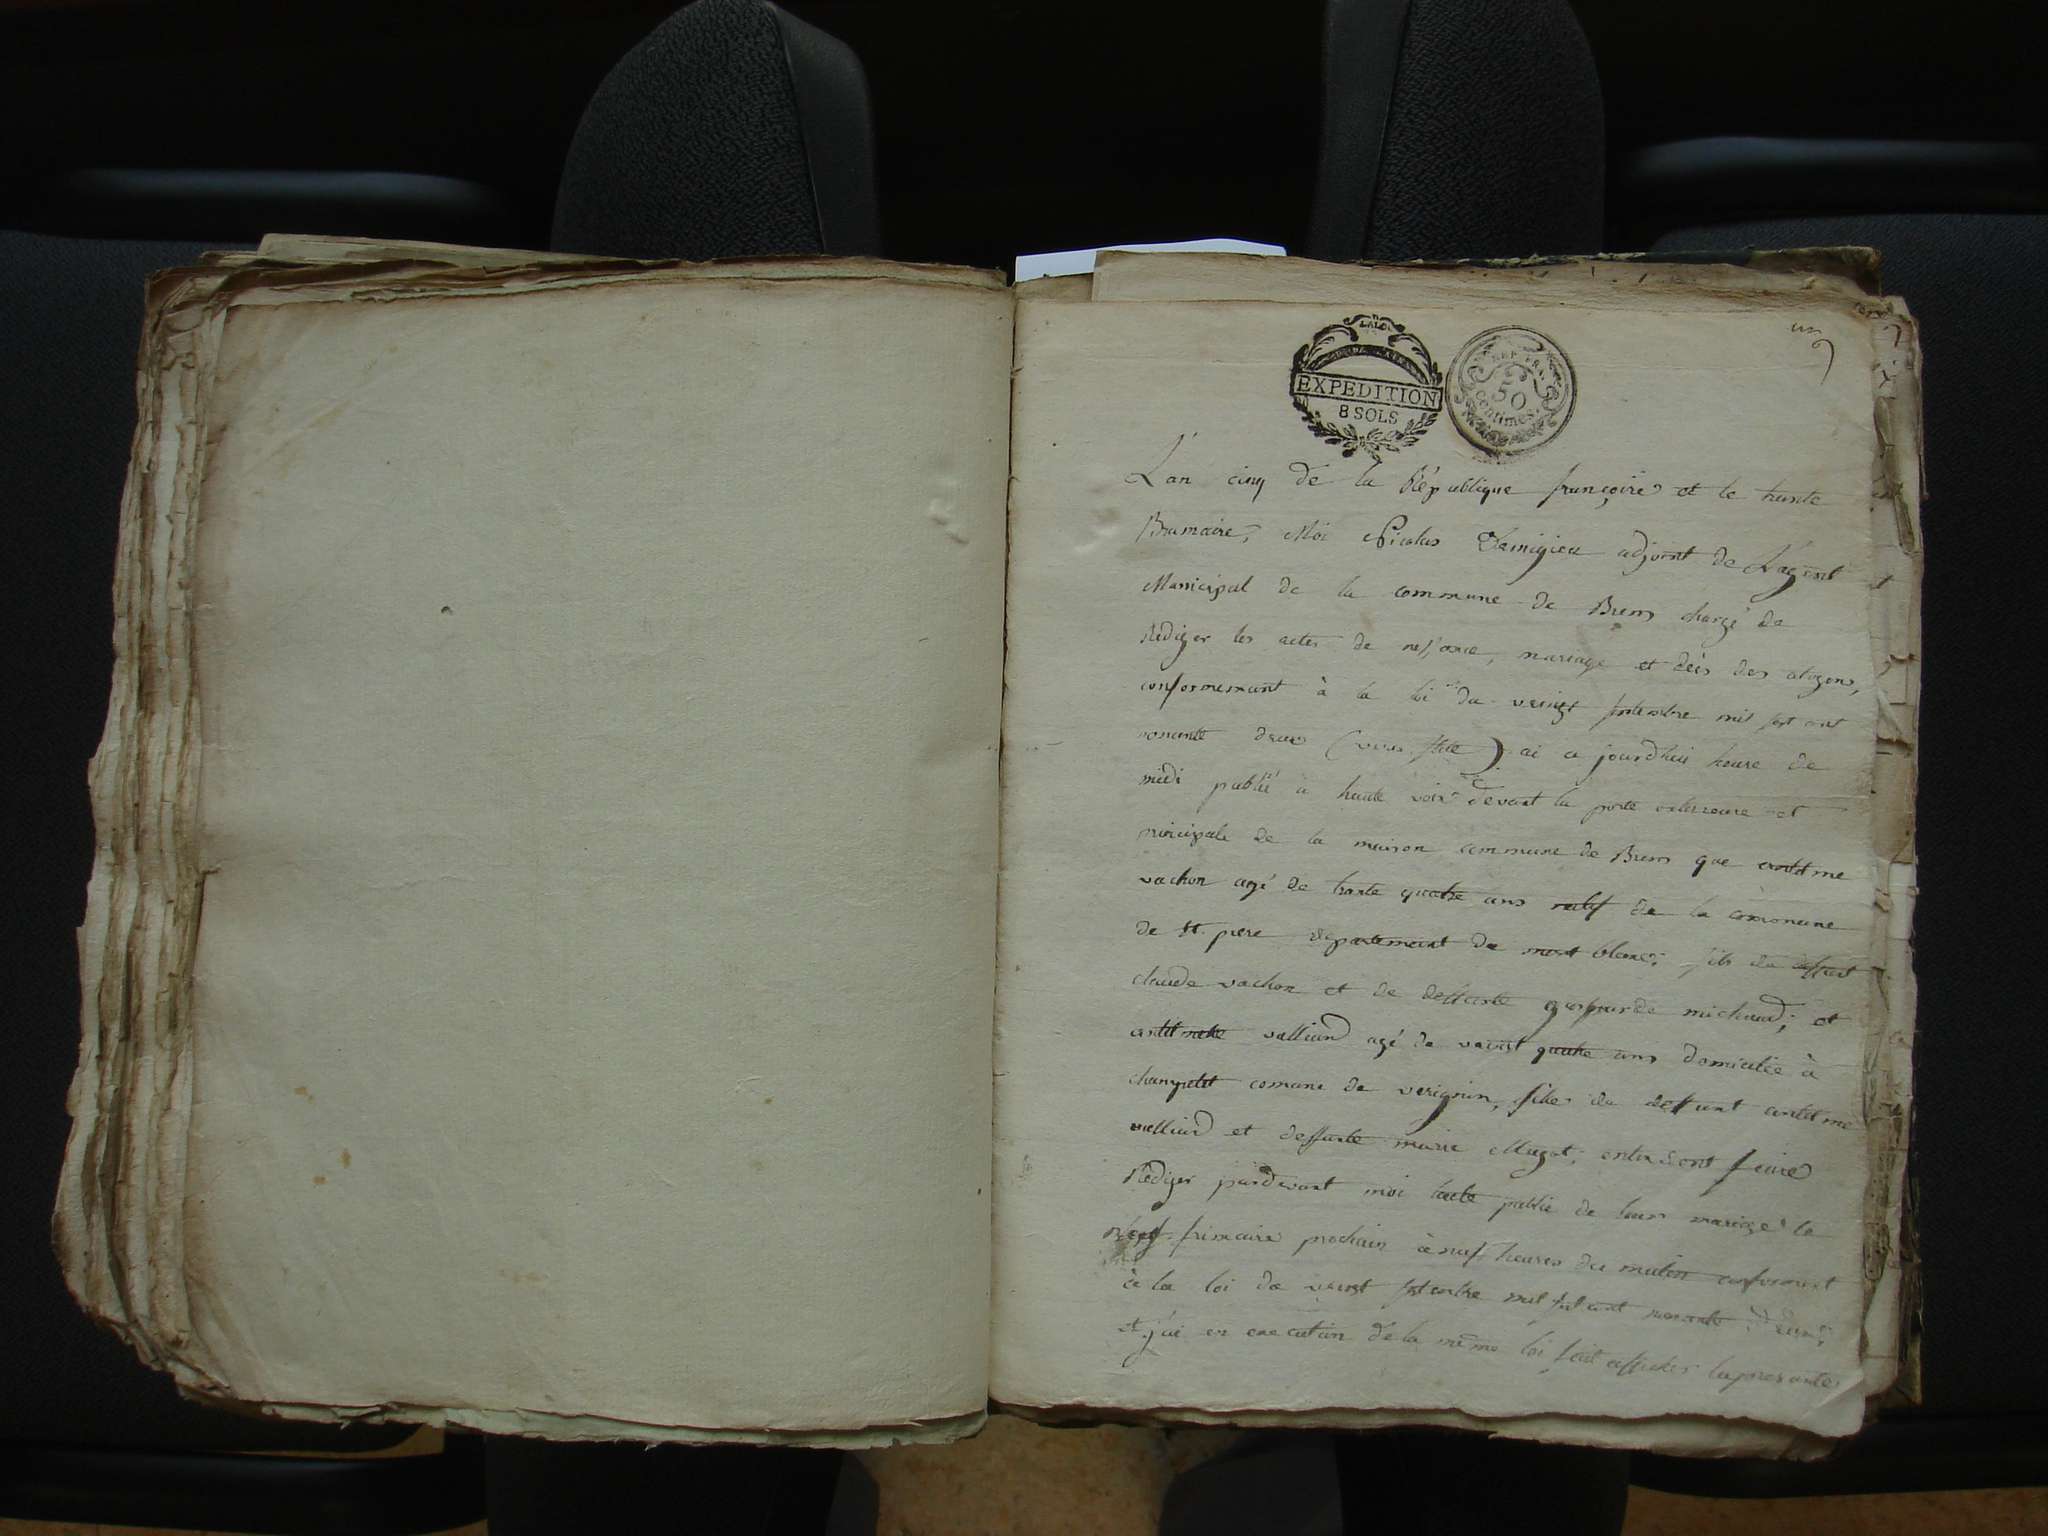 un
LA LOI
EXPEDITION
8 SOLS
REP. FRA.
50
centimes.
L'an cinq de la République françoise et le trante
Brumaire, Moi Nicolas adjoint de L'agent
Municipal de la commune de Brens chargé de
Rediger les actes de nessance, mariage et décès des citoyens,
conformemant à la loi du veingt septembre mil sept cent
nonante deux (vieux stile) ai ce jourdhui heure de
midi publié à haute voix devant la porte exterieure et
principale de la maison commune de Brens que antelme
vachon agé de trante quatre ans natif de la commune
de St. piere departemant du mont blanc, fils de deffunt
claude vachon et de deffunte gasparde michaud; et
antelmette valliand agé de veint quatre ans domicilée à
champetel comune de verignin, fille de deffunt antelme
valliand et deffunte marie Mugot; entendent faire
Rediger pardevant moi lacte public de leur mariage le
neuf frimaire prochain à neuf heures du matin conformemt
à la loi de veint septembre mil sept cent nonante deux;
et j'ai en execution de la même loi fait afficher la presante